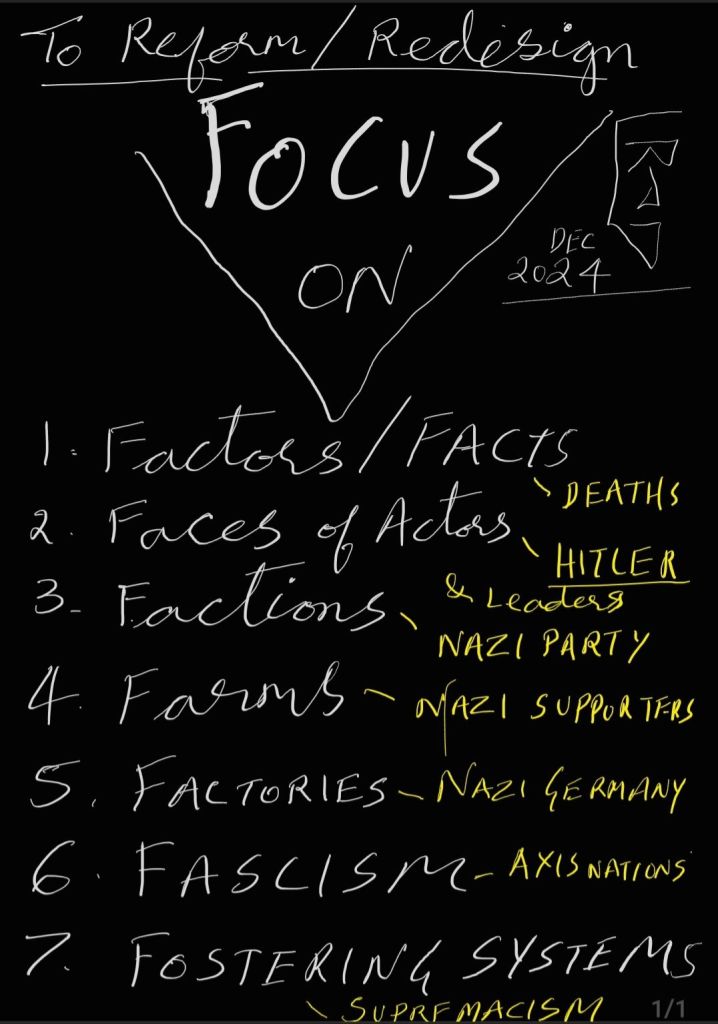 To Reform/Redesign
FOCUS
ON
DEC
2024
1. Factors/FACTS
DEATHS
2. Faces of Actors
HITLER
& Leaders
3- Factions
NAZI PARTY
4. Farms - NAZI SUPPORTERS
5. FACTORIES - NAZI GERMANY
6. FASCISM - AXIS NATIONS
7. FOSTERING SYSTEMS
SUPREMACISM
1/1